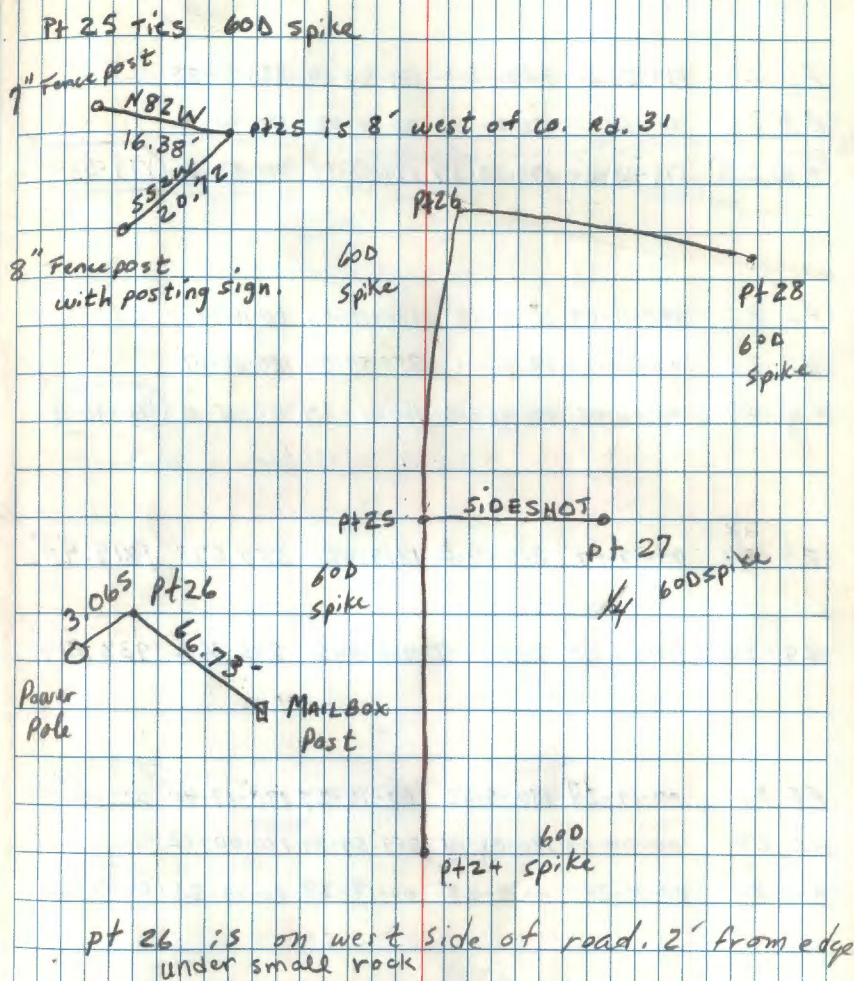 Pt 25 Ties 60D spike
7" Fence post
N82W
16.38'
pt25 is 8' west of co. Rd. 31
S52W
20.72
8" Fence post
with posting sign.
60D
Spike
Pt26
pt 28
60D
Spike
pt25
SIDESHOT
pt 27
1/4 60D spike
60D
Spike
3.065
Pt26
66.73-
Power
Pole
MAILBOX
Post
60D
pt24 spike
pt 26 is on west side of road. 2' from edge
under small rock